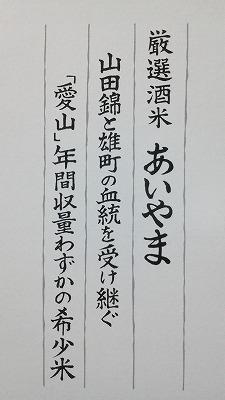 厳選酒米 あいやま
山田錦と雄町の血統を受け継ぐ
「愛山」年間収量わずかの希少米